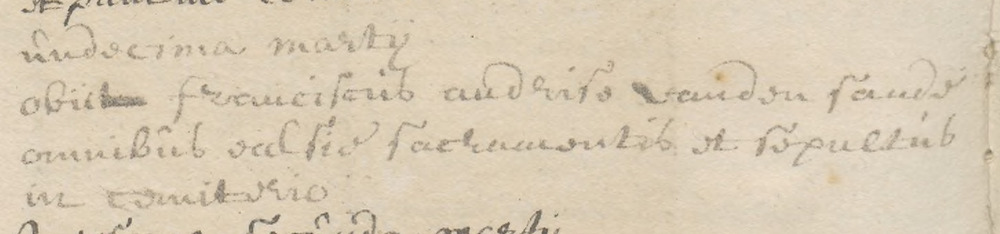 undecima martij
obiit franciscus andrise vanden sande
omnibus ealsie sacramentis et sepultus
in cemiterio